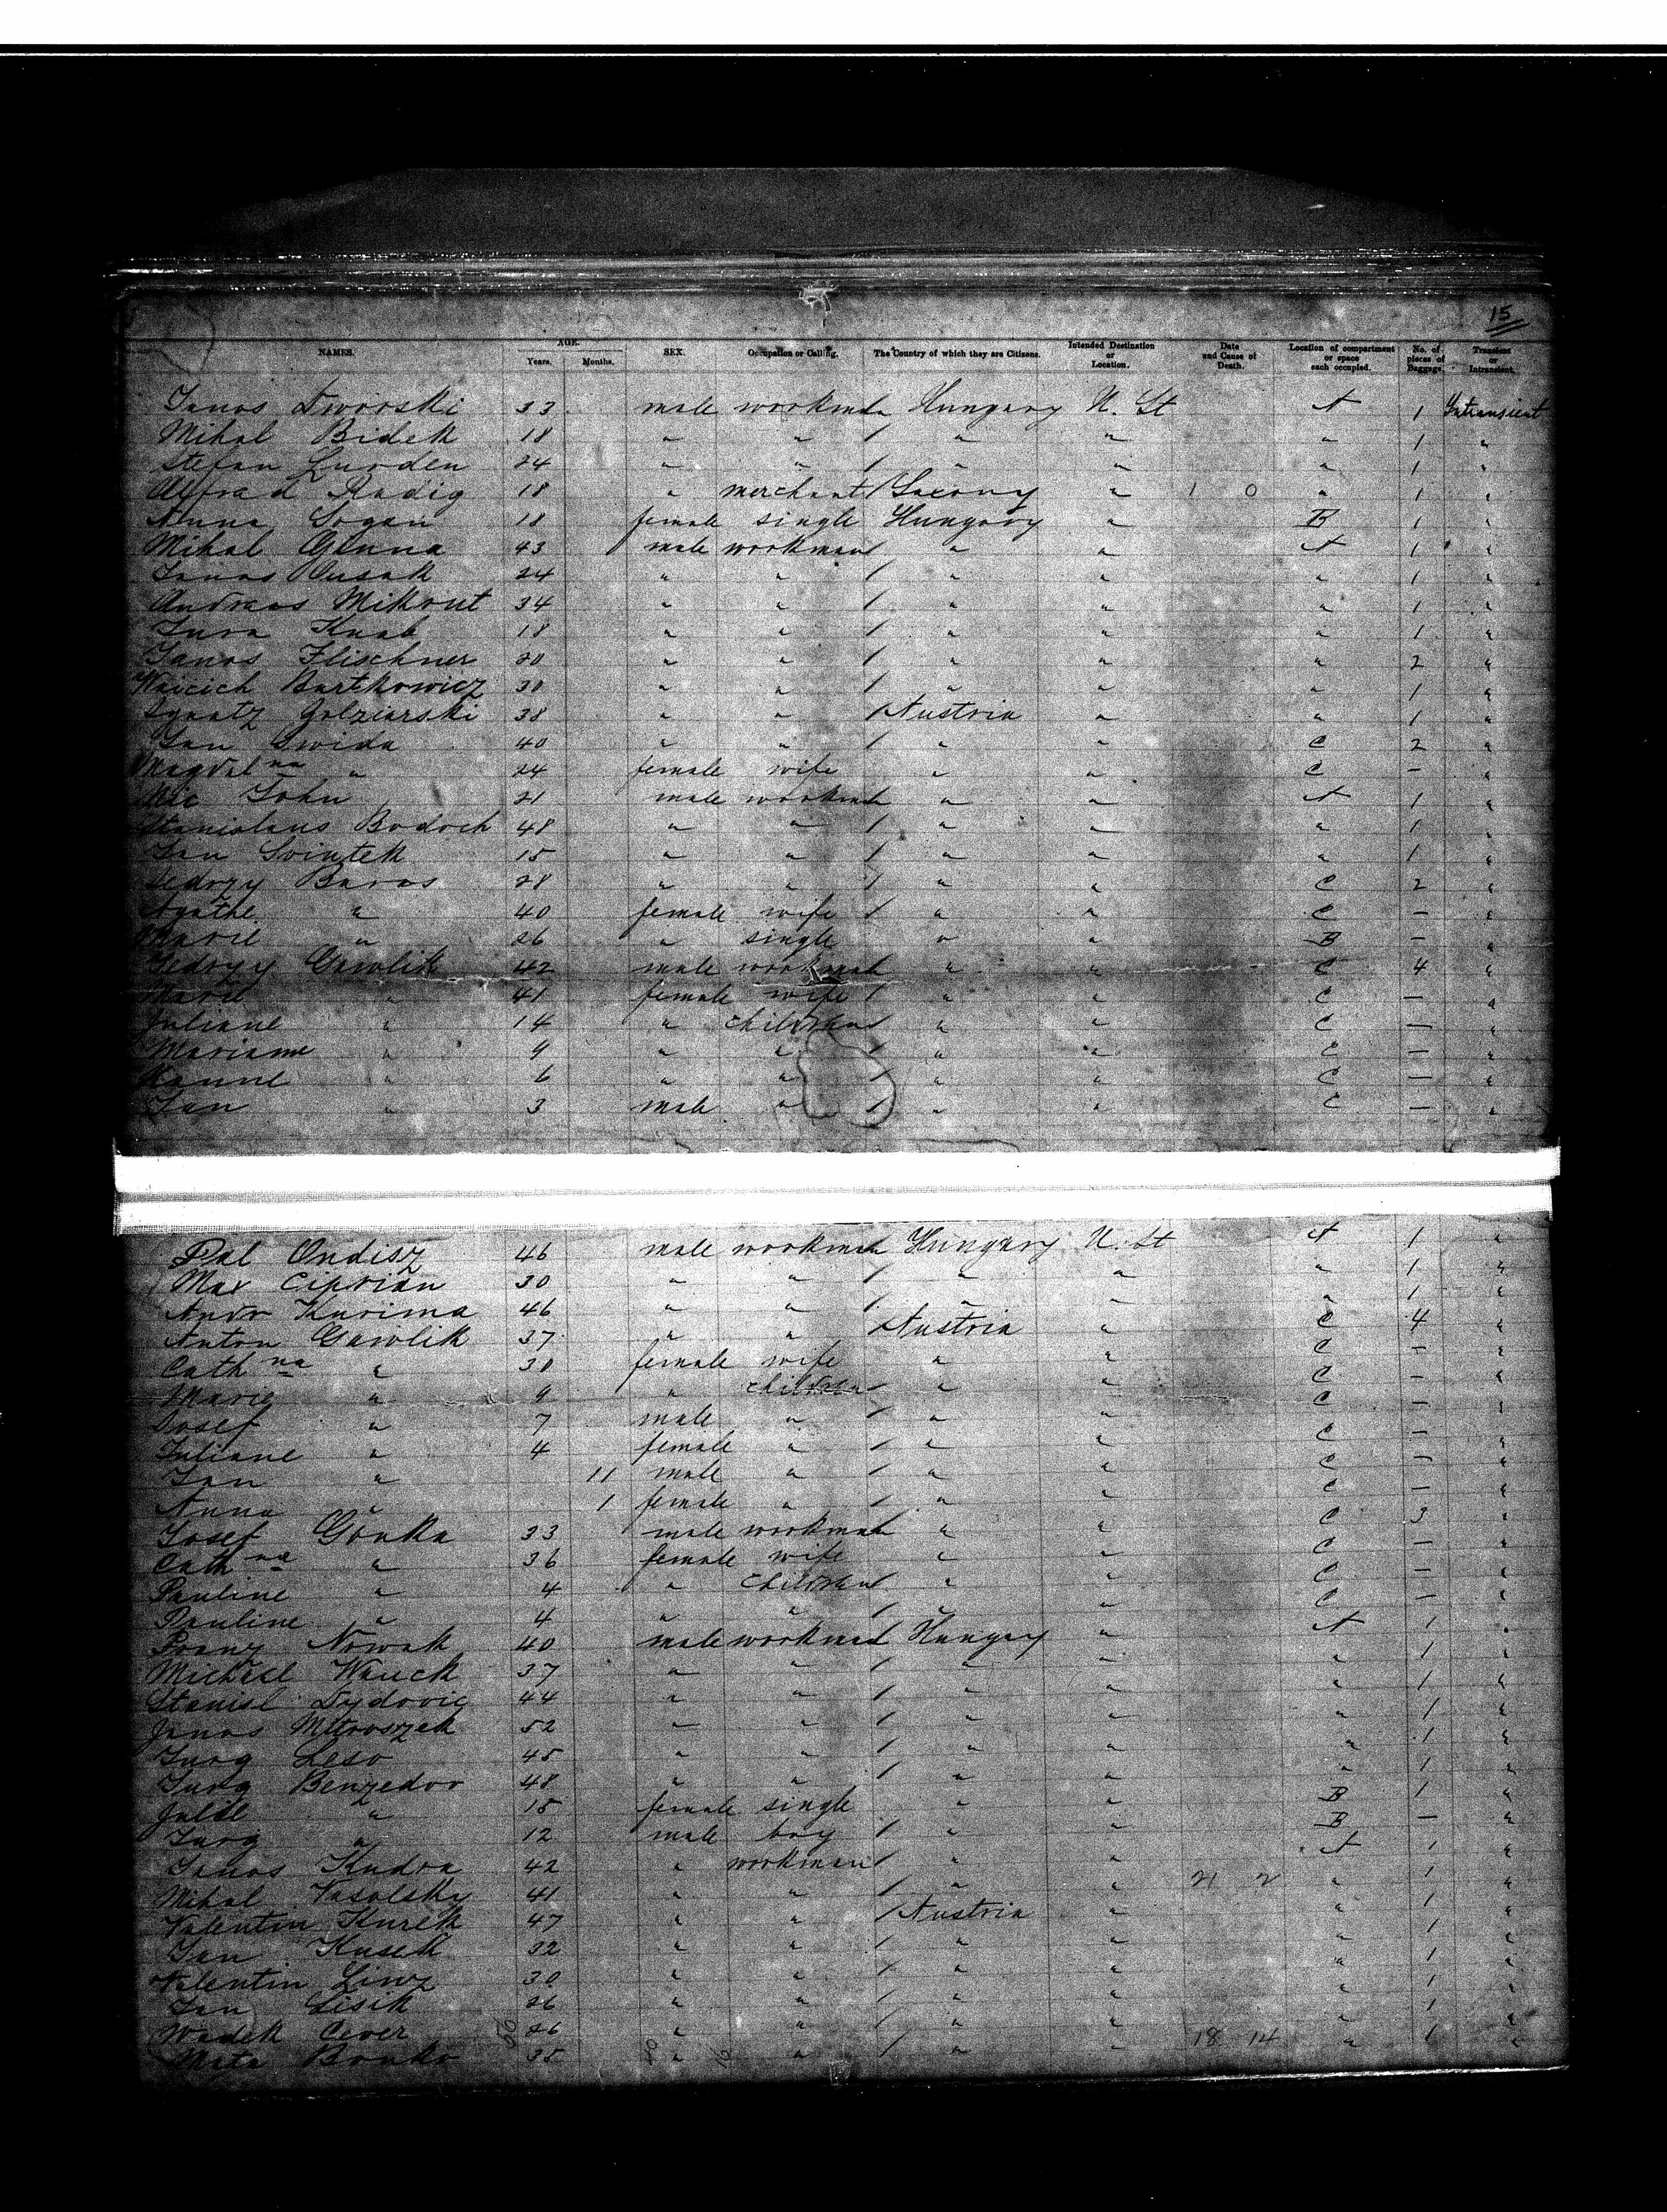 15
NAMES. AGE. Years. Months. SEX. Occupation or Calling. The Country of which they are Citizens. Intended Destination or Location. Date and Cause of Death. Location of compartment or space each occupied. No. of pieces of Baggage. Transient or Intransient.
Janos Dworski 33 male workman Hungary U. St A 1 Intransient
Mihal Bidek 18 " " / " " " 1 "
Stefan Gurden 24 " " / " " " 1 "
Alfrad Radig 18 " merchant / Saxony " 1 0 " 1 "
Anna Sogan 18 female single Hungary " B 1 "
Mihal Glnna 43 male workman / " " A 1 "
Janos Dusak 24 " " / " " " 1 "
Andreas Mikrut 34 " " / " " " 1 "
Jura Knab 18 " " / " " " 1 "
Janos Flischner 20 " " / " " " 2 "
Woicich Bartkowicz 30 " " / " " " 1 "
Ignatz Golziarski 38 " " / Austria " " 1 "
Jan Swida 40 " " / " " C 2 "
Magdalna " 24 female wife " " C – "
Mic John 21 male workman " " A 1 "
Stanislaus Bodoch 48 " " / " " " 1 "
Jan Svintek 15 " " / " " " 1 "
Jedrzy Baras 28 " " / " " C 2 "
Agathe " 40 female wife / " " C – "
Marie " 26 " single " " B – "
Jedrzy Gawlik 42 male workman " " C 4 "
Marie " 41 female wife / " " C – "
Juliane " 14 " children / " " C – "
Mariane " 9 " " / " " C – "
Hanne " 6 " " / " " C – "
Jan " 3 male " / " " C – "
Pal Ondisz 46 male workman Hungary U. St A 1 "
Max Ciprian 30 " " / " " " 1 "
Andr Kurima 46 " " / " " " 1 "
Anton Gawlik 37 " " / Austria " C 4 "
Cathna " 30 female wife " " C – "
Marie " 9 " children " " C – "
Josef " 7 male " / " " C – "
Juliane " 4 female " / " " C – "
Jan " 11 male " / " " C – "
Anna " 1 female " / " " C – "
Josef Gonka 33 male workman " " C 3 "
Cathna " 36 female wife " " C – "
Pauline " 4 " children " " C – "
Pauline " 4 " " / " " C – "
Franz Nowak 40 male workman Hungary " A 1 "
Michael Wauck 37 " " / " " " 1 "
Stanisl Dydovic 44 " " / " " " 1 "
Janos Mitroszek 52 " " / " " " 1 "
Jurg Leso 45 " " / " " " 1 "
Jurg Benzedor 48 " " / " " " 1 "
Julie " 15 female single " " B 1 "
Jurg " 12 male boy / " " B – "
Janos Kudra 42 " workman / " " A 1 "
Mihal Vasolsky 41 " " / " " 21 2 " 1 "
Valentin Kurek 47 " " / Austria " " 1 "
Jan Kusek 32 " " / " " " 1 "
Valentin Linz 30 " " / " " " 1 "
Jan Lisik 26 " " / " " " 1 "
Wadek Cever 26 " " / " " " 1 "
Mata Bonko 35 " " / " " 18 14 " 1 "